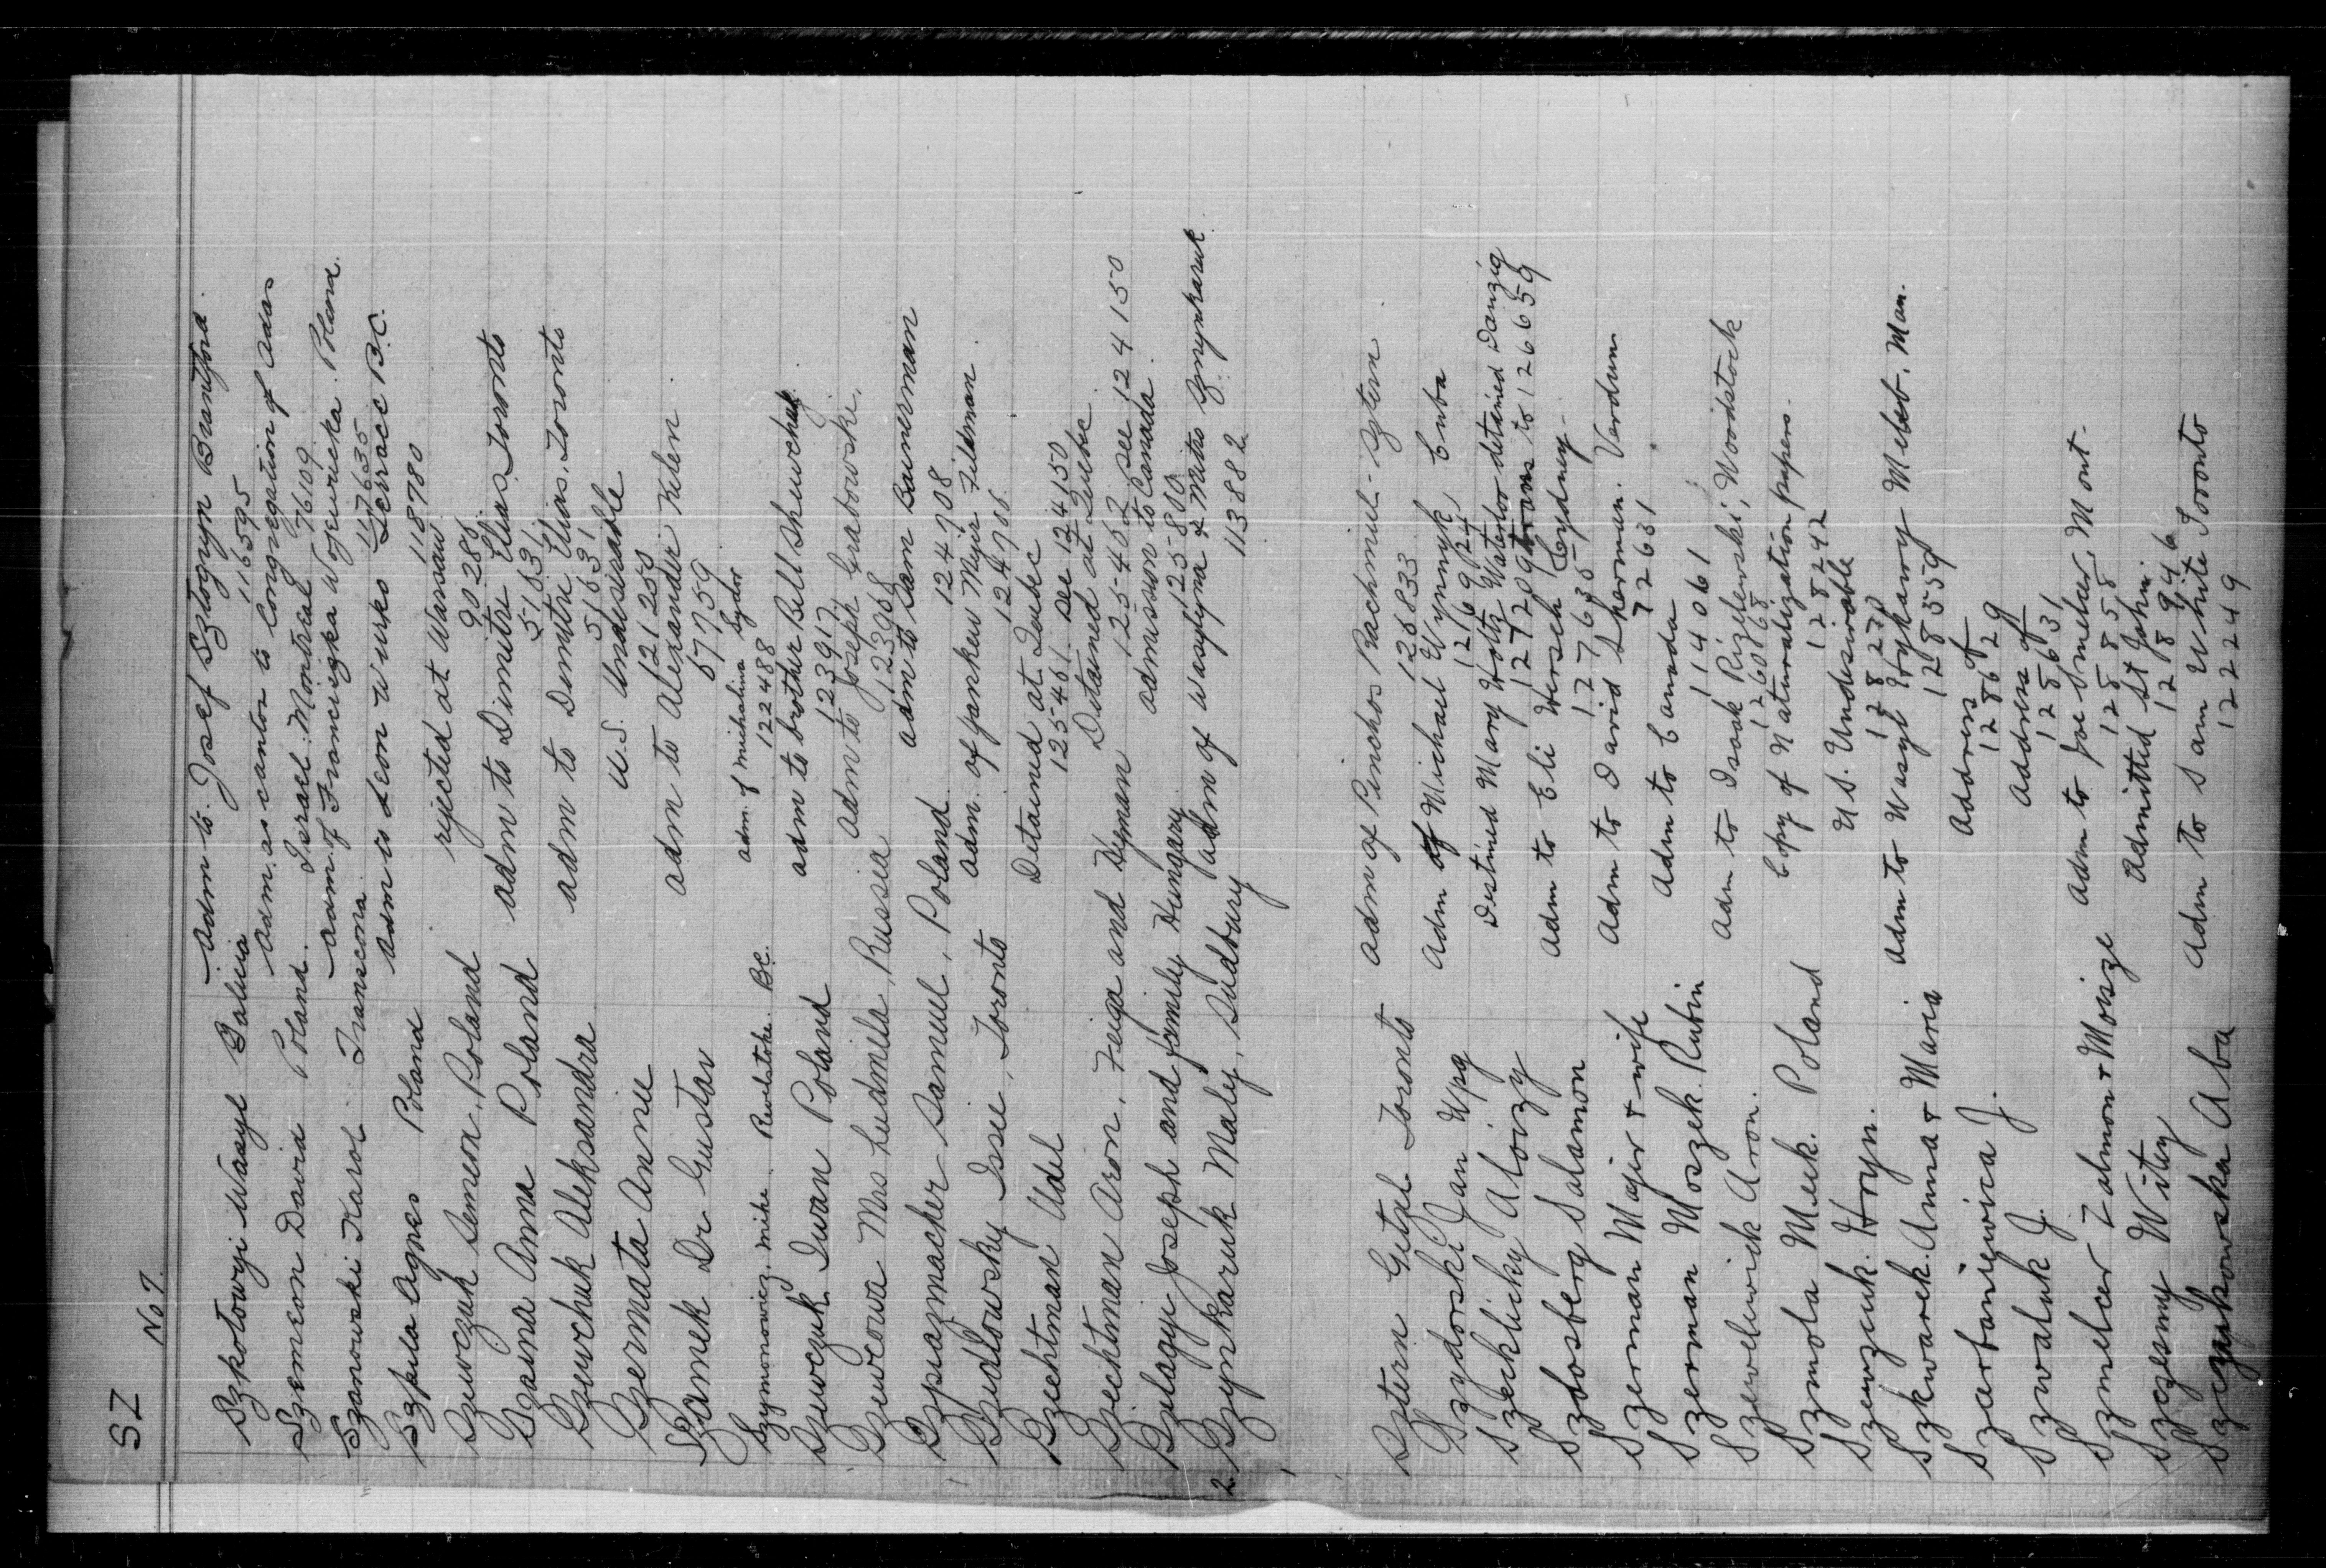 SZ No 7.
Szkolowyi Wasyl Galicia Adm to Josef Sztogryn Brantford.
116595
Szemeon David Poland. Adm. as cantor to Congregation of Adas
Israel. Montreal 76109
Szanowski Karol Transcona. Adm of Franciszka Wojewicka Poland.
117635
Szpula Agnes Poland Adm to Leon Wirko Terrace B.C.
118780
Szewczuk Semeon, Poland rejected at Warsaw
90286
Szaina Anna Poland adm to Dimitri Elias, Toronto
51631
Szewchuk Aleksandra adm to Dimitri Elias, Toronto
51631
Szermata Annie U.S. Undesirable
121250
Szamek Dr Gustav adm to Alexander Kelen.
67759
Szymonowicz, Mike. Revelstoke. BC. adm. of Michalina Sydor
122488
Szewczuk Iwan Poland adm to brother Bill Shewchuk.
123917
Szewcowa Mrs Ludmila, Russia Adm to Joseph Grabowski.
123968
Szpiazmacher Samuel, Poland adm to Sam Bainerman
124708
Szidlowsky Issie, Toronto Adm. of Jankew Mejir Feldman.
124766
Szechtman Udel Detained at Quebec
125461 see 124150
Szechtman Aron, Feiga and Hyman Detained at Quebec
125462 see 124150
Szilagyi Joseph and family Hungary admission to Canada.
125800
2 Szynkaruk Maley, Sudbury adm of Wasylyna & Mitro Szynkaruk.
113882
Sztern Gitzel Toronto adm of Pinchos Rachmiel-Sztern
126833
Szydorski Jan Wpg Adm of Michael Wynnyk Cuba
126924
Szechlicky Aloizy Destined Mary Holtz Waterloo detained Danzig
127209 trans to 126659
Szlosberg Salamon Adm to Eli Hersch Sydney
127635
Szerman Majer & wife Adm to David Sherman. Verdun
72631
Szerman Moszek Rubin Adm to Canada
114061
Szewelewich Aron. Adm to Isaak Rizilewski, Woodstock
126068
Szmola Meek. Poland Copy of Naturalization papers.
128242
Szewzcuk Hryn. U S. Undesirable
128270
Szkwarek Anna & Maria Adm to Wasyl Hrykawy Meleb, Man.
128559
Szartaniewica J. Address of
128629
Szwaluk J. Address of
128631
Szmelcer Zalmon & Moisze Adm to Joe Smelcer, Mont.
128858
Szczesny Wity Admitted St John.
128946
Szczupkowska Aba Adm to Sam White Toronto
122249